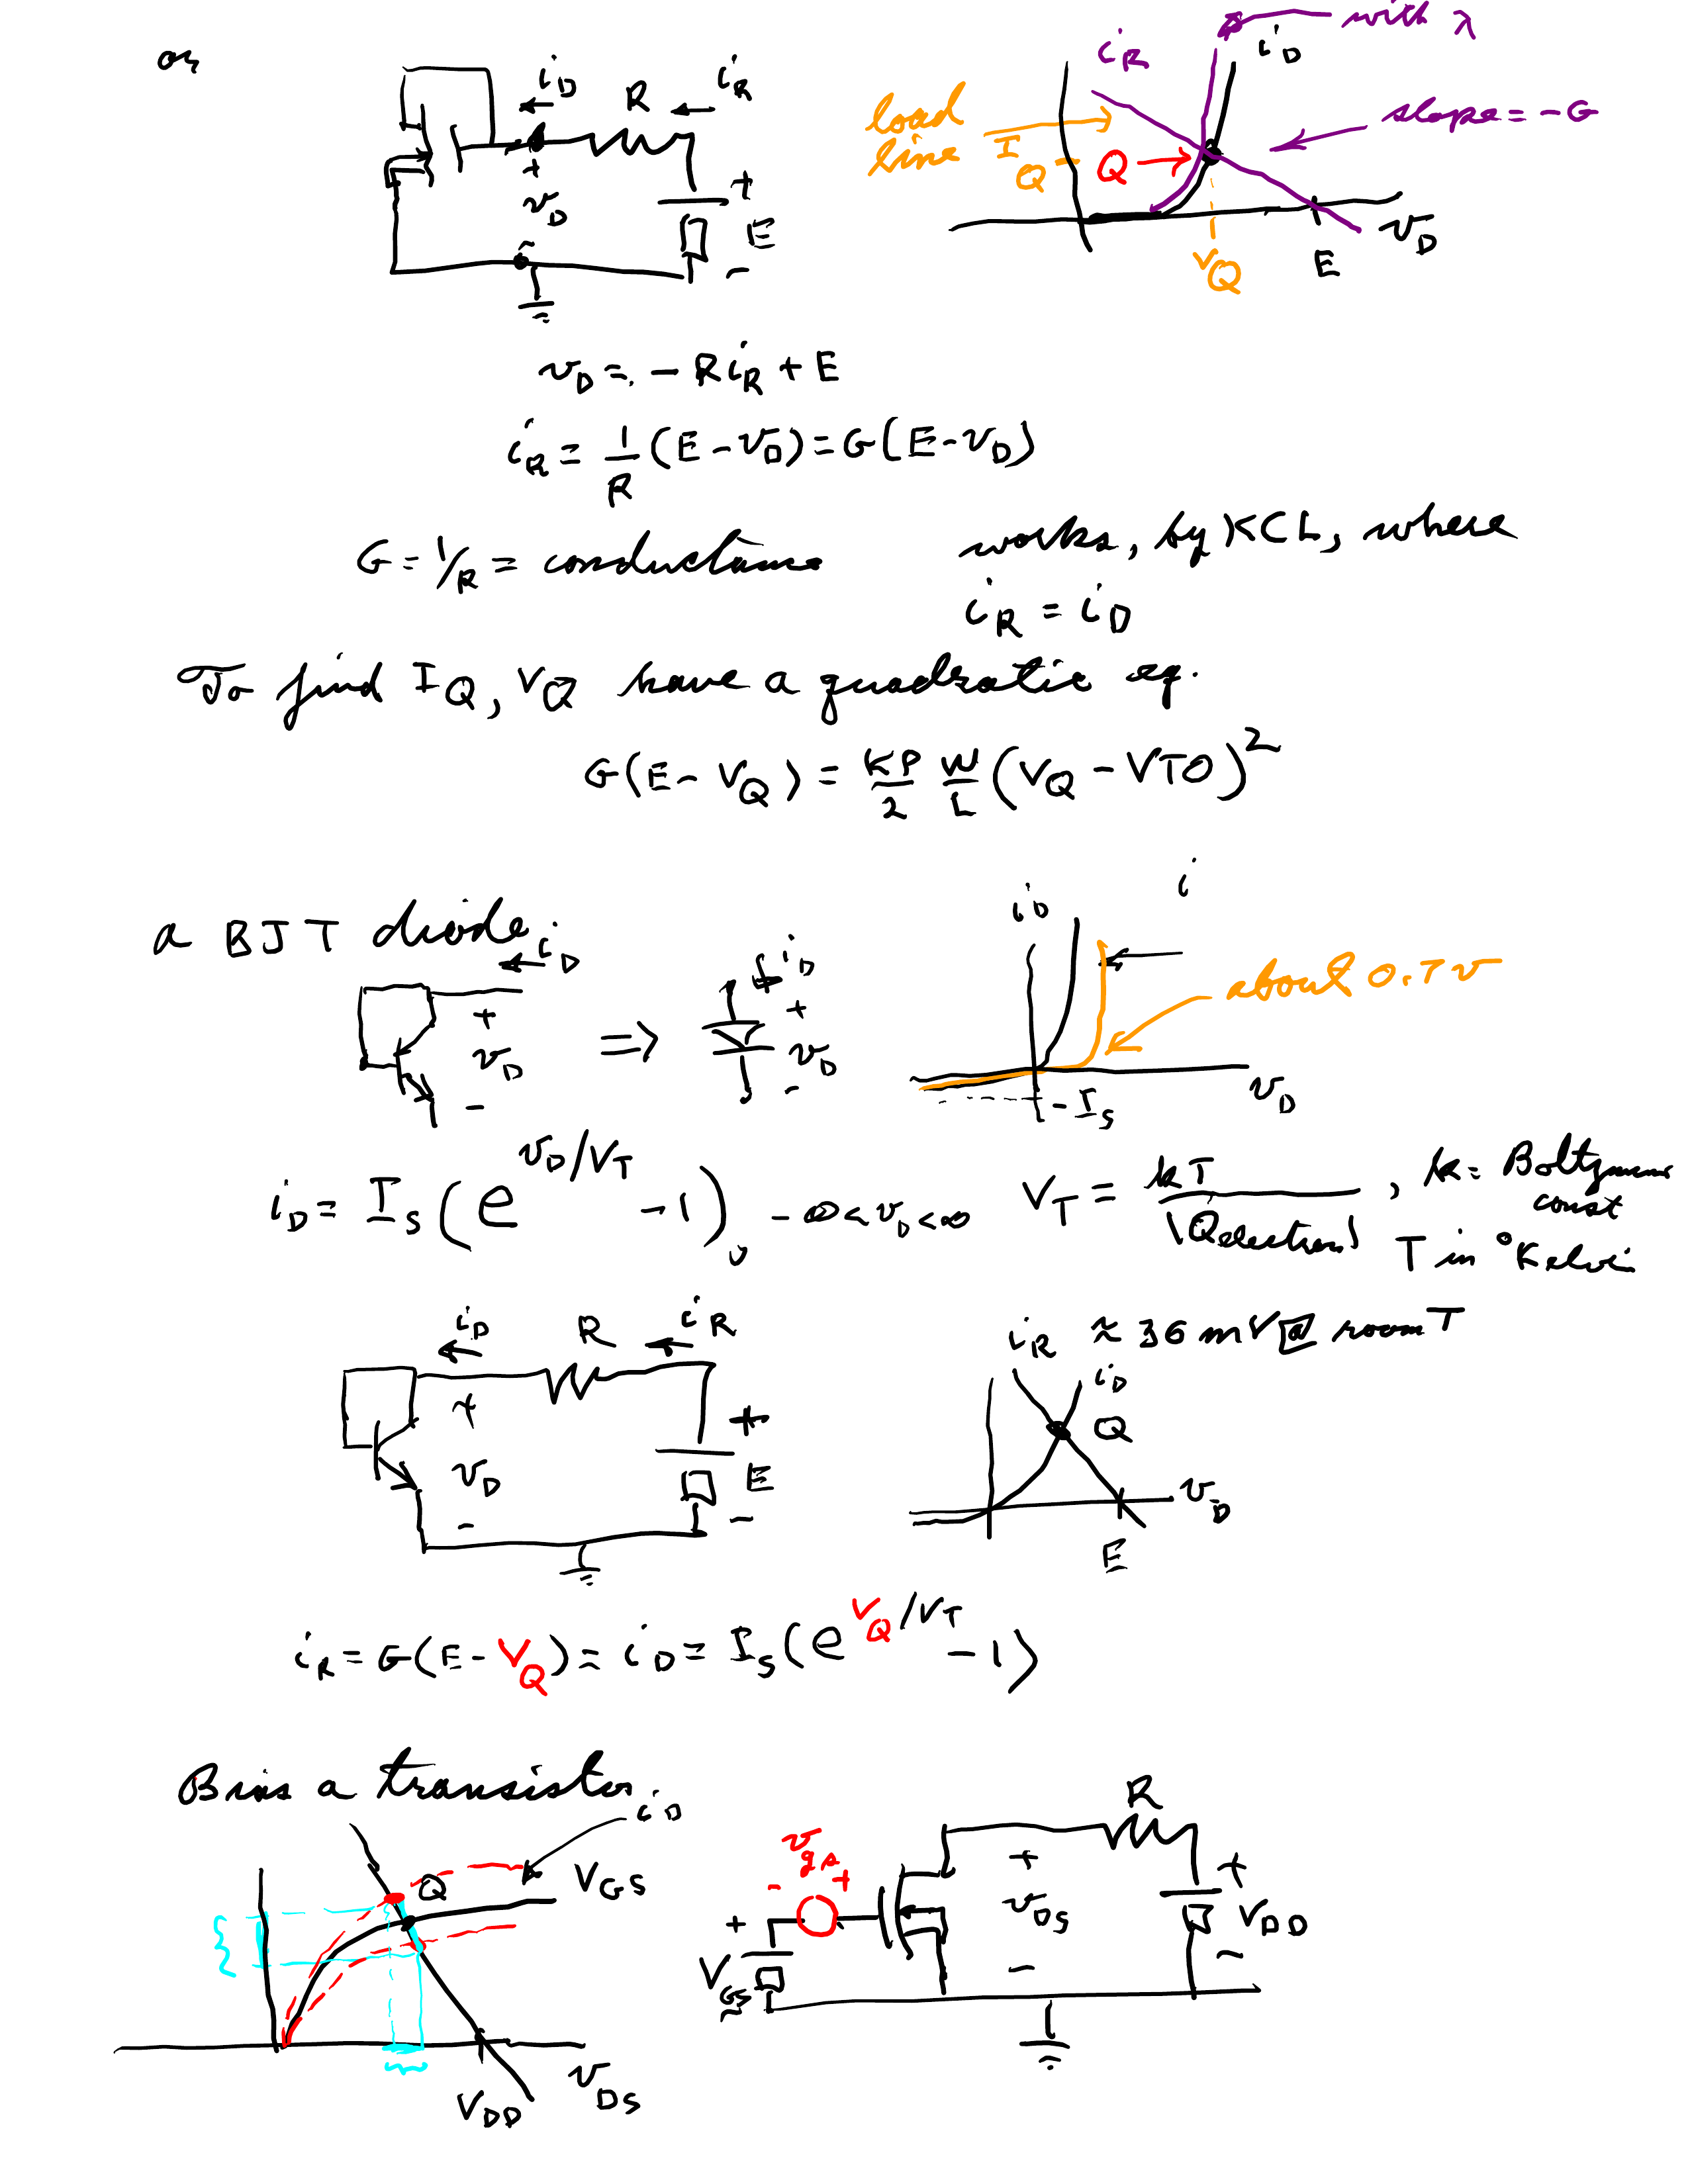 or
i_D R i_R
+ v_D -
+ E -
i_R i_D with λ
load line
I_Q Q
slope = -G
V_Q E v_D
v_D = -R i_R + E
i_R = 1/R (E - v_D) = G(E - v_D)
G = 1/R = conductance
works, by KCL, where
i_R = i_D
To find I_Q, V_Q have a quadratic eq.
G(E - V_Q) = KP/2 W/L (V_Q - VTO)^2
a BJT diode
i_D
+ v_D -
⇒
i_D
+ v_D -
i_D i
about 0.7v
-I_S v_D
i_D = I_S (e^{v_D/V_T} - 1), -∞ < v_D < ∞
V_T = kT/|Qelectron|, k = Boltzmann const
T in °Kelvin
≈ 36 mV @ room T
i_D R i_R
+ v_D -
+ E -
i_R i_D
Q
v_D
E
i_R = G(E - V_Q) = i_D = I_S (e^{V_Q/V_T} - 1)
Bias a transistor
i_D
Q V_GS
V_DD v_DS
R
v_gs
- +
+ V_GS
+ v_DS -
+ V_DD -